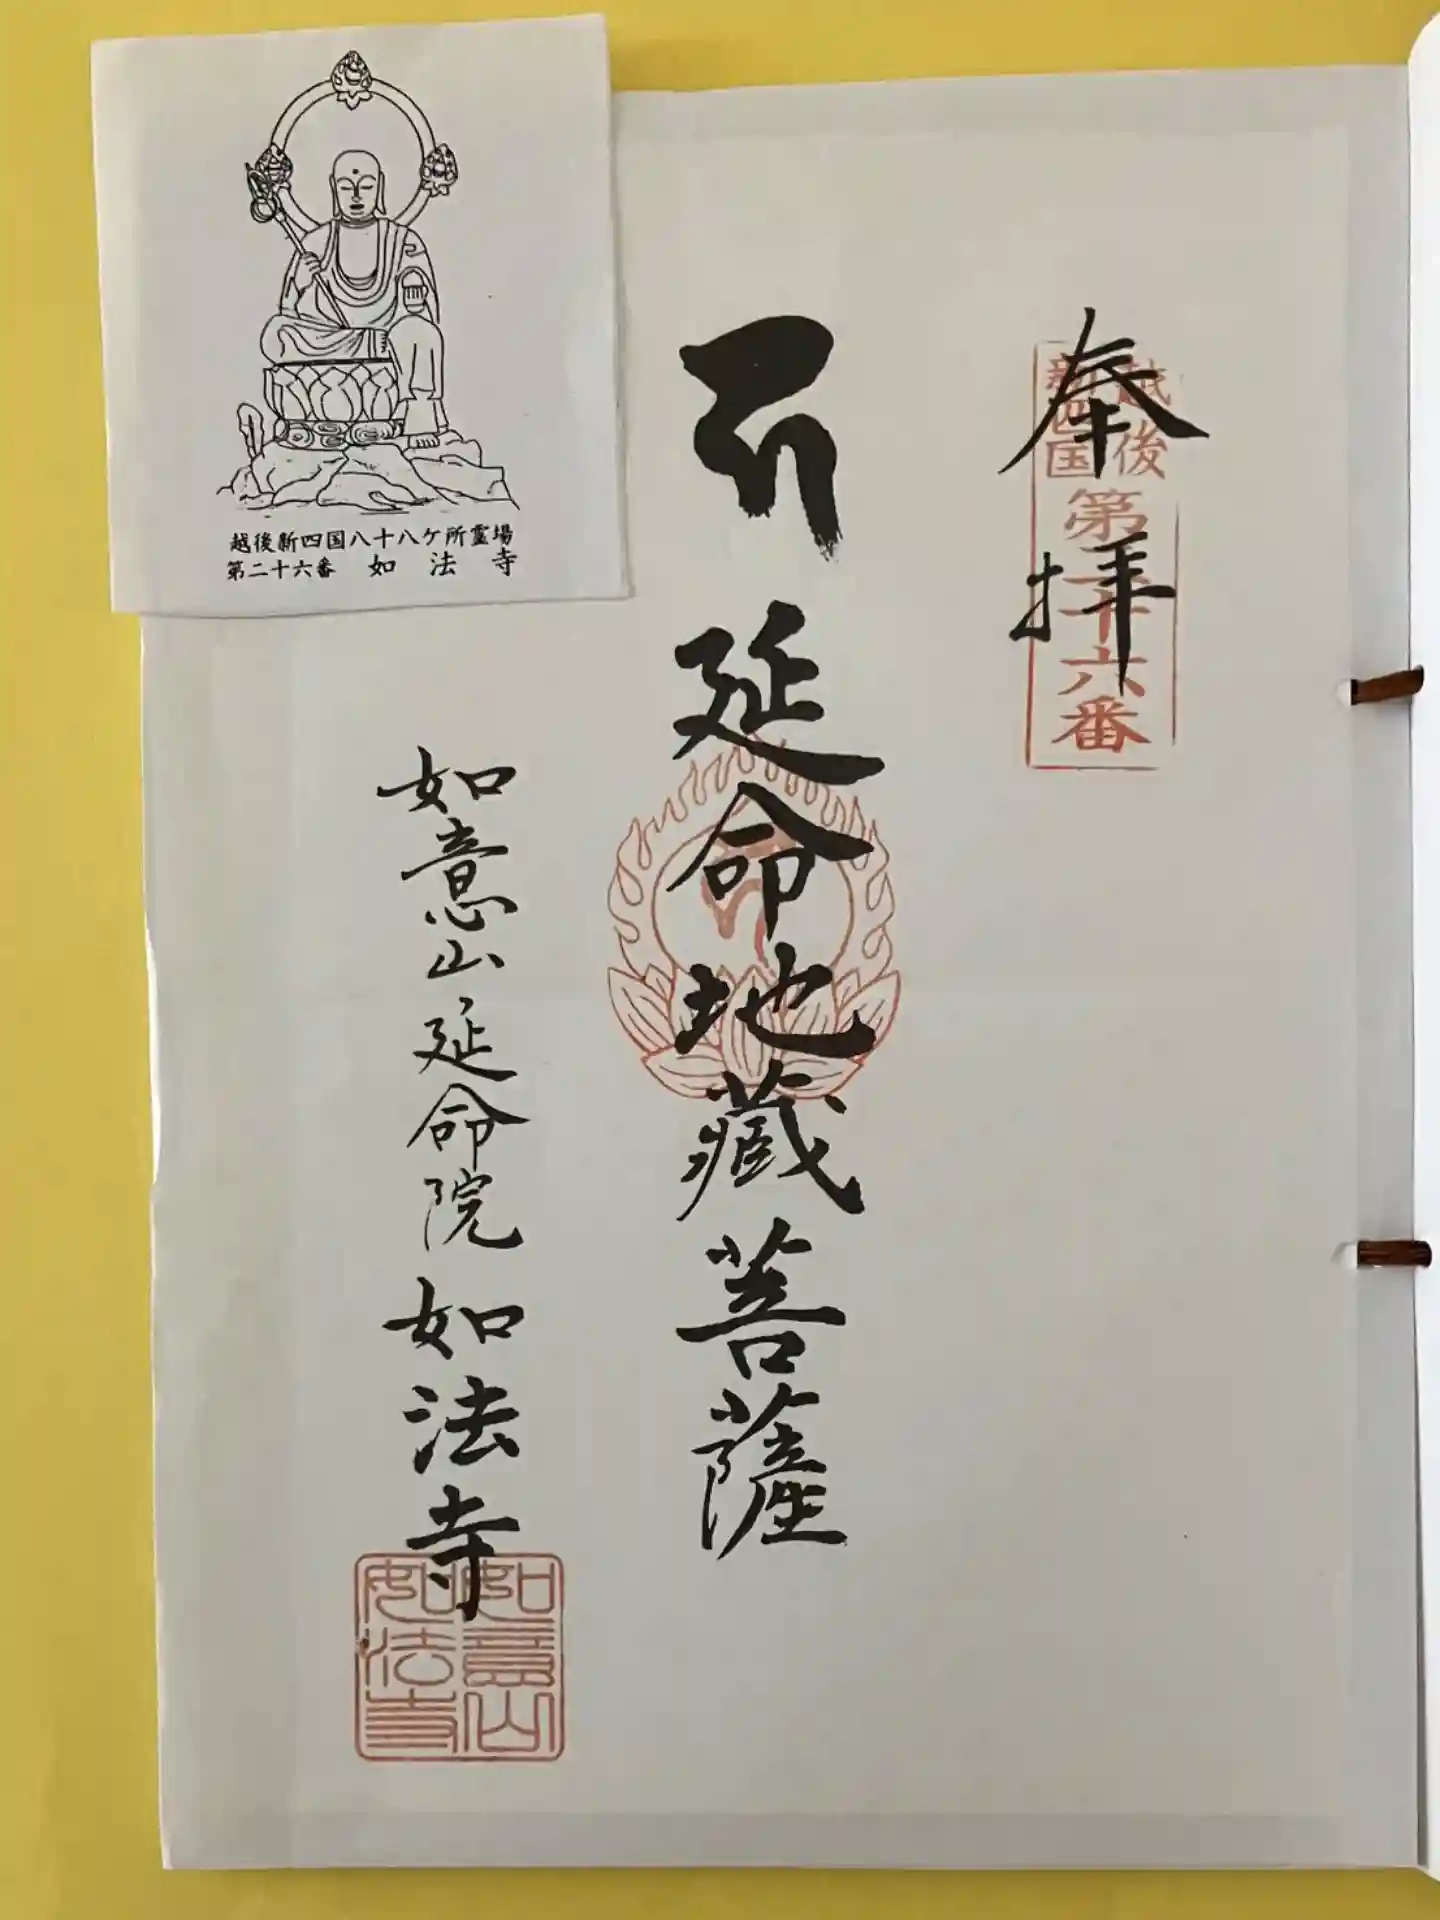 越後新四国八十八ケ所霊場
第二十六番 如法寺
奉拝
越後
新四国
第二十六番
延命地蔵菩薩
如意山延命院如法寺
如意山
如法寺